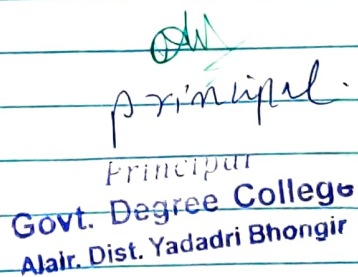 principal.
Principal
Govt. Degree College
Alair. Dist. Yadadri Bhongir